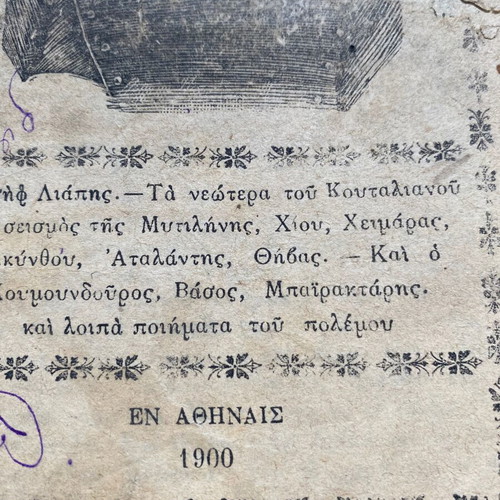 Λιάπης. — Τὰ νεώτερα τοῦ Κουταλιανοῦ
σεισμὸς τῆς Μυτιλήνης, Χίου, Χειμάρας,
Ἀταλάντης, Θήβας. — Καὶ ὁ
Κουμουνδοῦρος, Βάσος, Μπαϊρακτάρης.
καὶ λοιπὰ ποιήματα τοῦ πολέμου
ΕΝ ΑΘΗΝΑΙΣ
1900